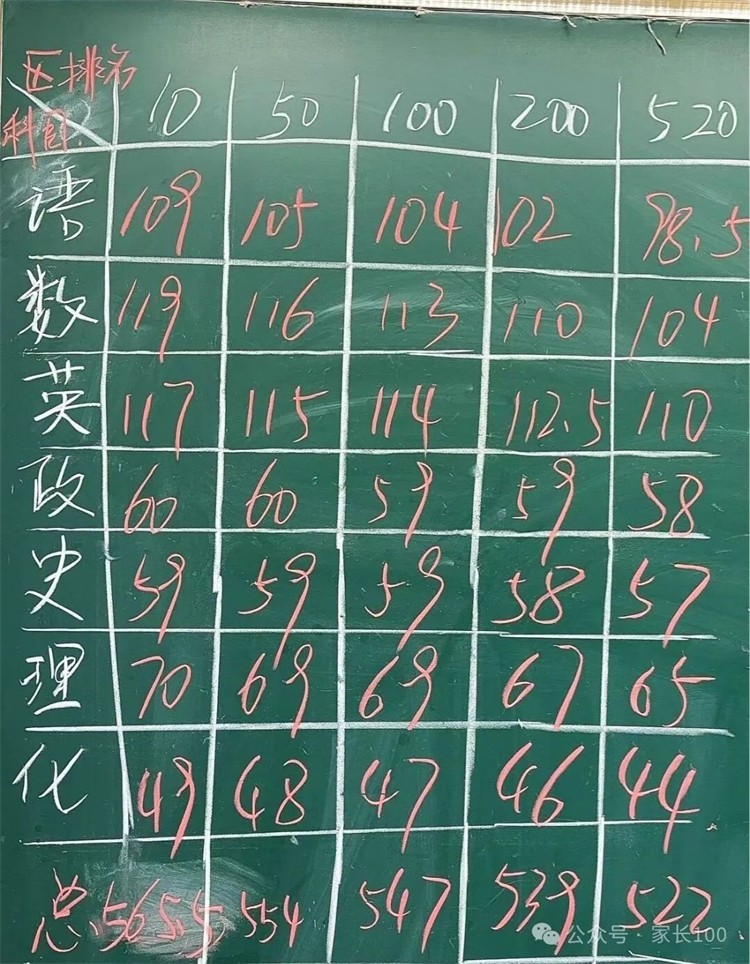 区排名
科目 10 50 100 200 520
语 109 105 104 102 98.5
数 119 116 113 110 104
英 117 115 114 112.5 110
政 60 60 59 59 58
史 59 59 59 58 57
理 70 69 69 67 65
化 49 48 47 46 44
总 565.5 554 547 539 522
公众号·家长100